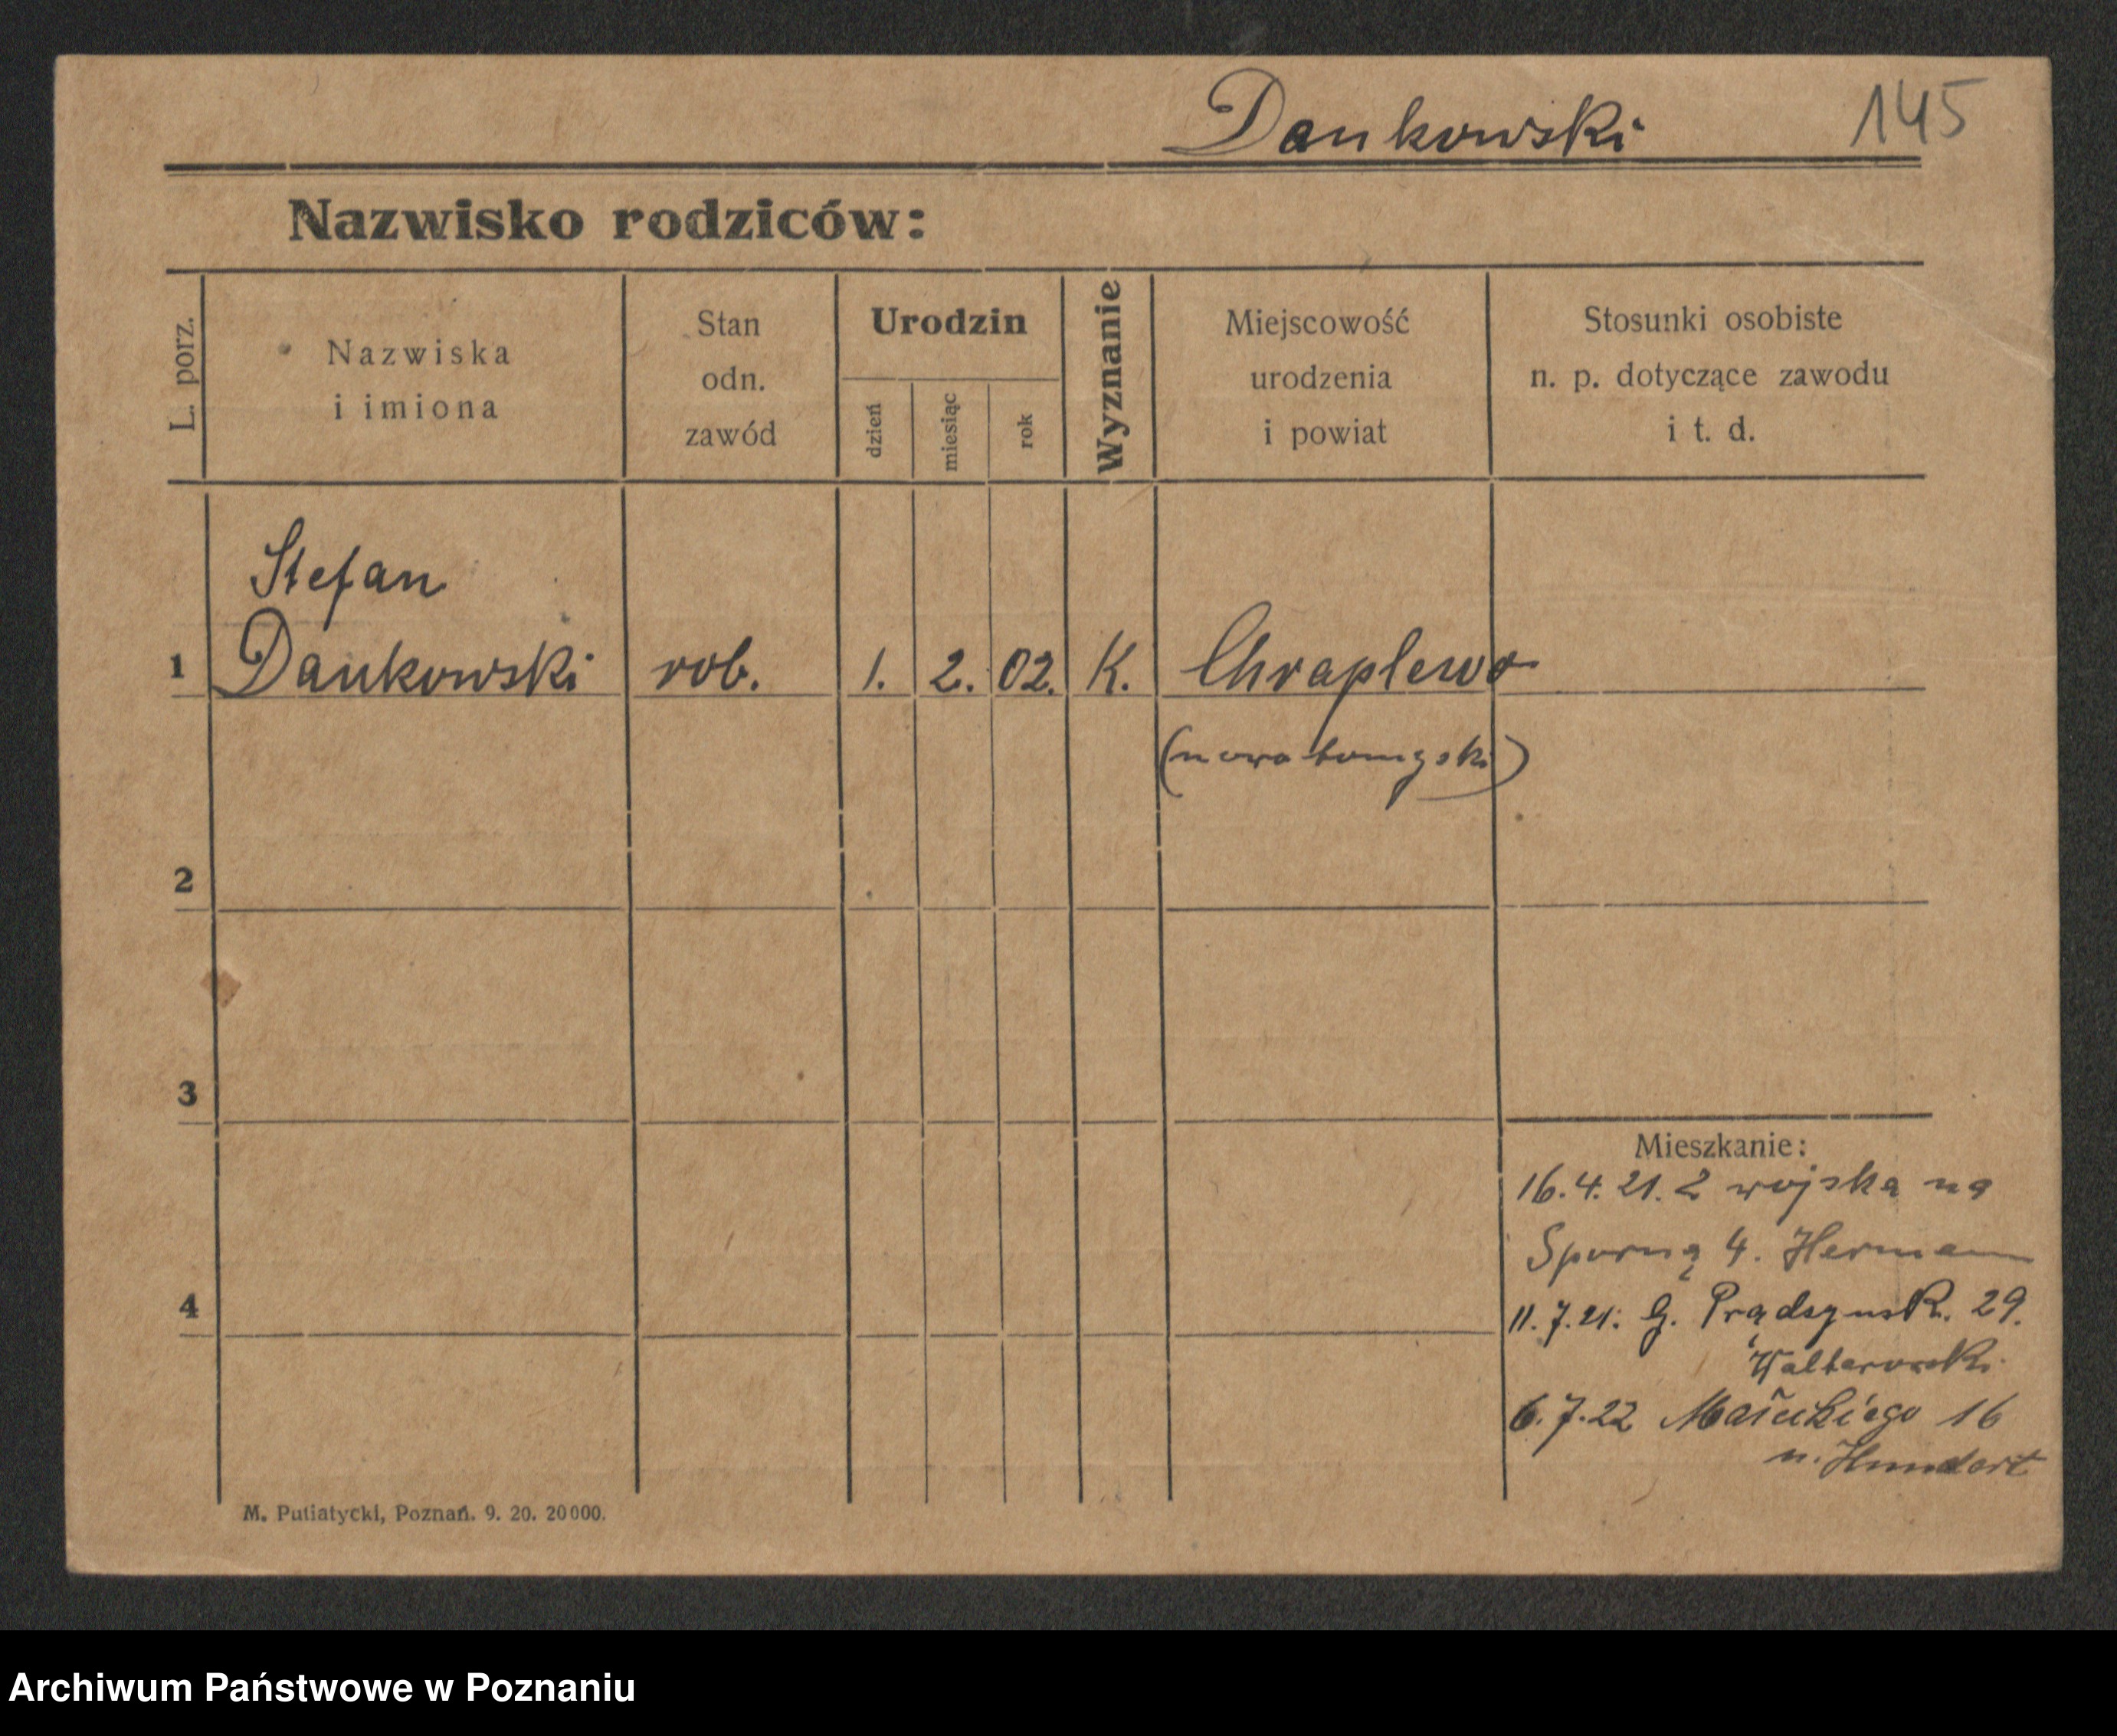 Dankowski 145
Nazwisko rodziców:
L. porz.
Nazwiska
i imiona
Stan
odn.
zawód
Urodzin
dzień
miesiąc
rok
Wyznanie
Miejscowość
urodzenia
i powiat
Stosunki osobiste
n. p. dotyczące zawodu
i t. d.
Stefan
1 Dankowski rob. 1. 2. 02. K. Chraplewo
(nowotomyski)
2
3
Mieszkanie:
16.4.21. Z wojska na
Sporną 4. Hermann
4
11.7.21. G. Prądzyńsk. 29.
6.7.22 Małeckiego 16
M. Putiatycki, Poznań. 9. 20. 20000.
Archiwum Państwowe w Poznaniu